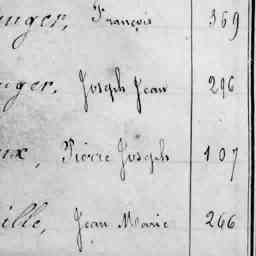 uger, François 369
uger, Joseph Jean 296
ux, Pierre Joseph 107
ille, Jean Marie 266